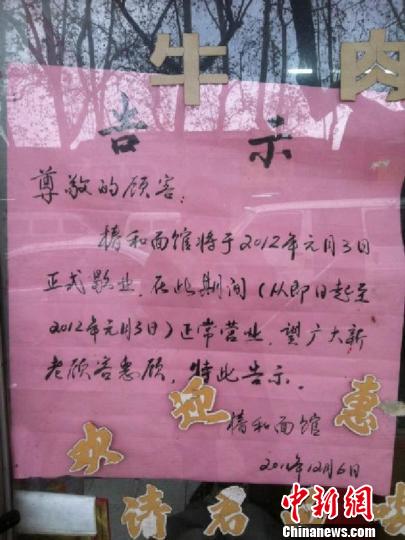 牛 肉
告 示
尊敬的顾客:
楕和面馆将于2012年元月3日
正式歇业.在此期间(从即日起至
2012年元月3日)正常营业,望广大新
老顾客惠顾,特此告示.
楕和面馆
2011年12月6日
迎 惠
请
中新网
Chinanews.com